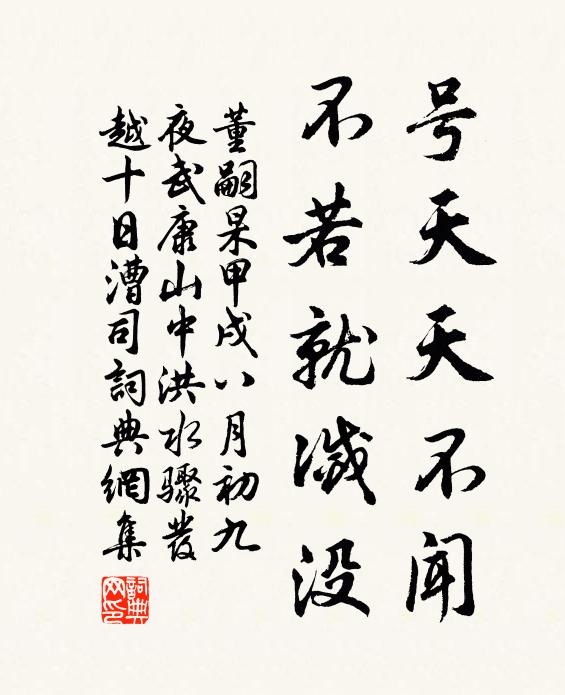 号天天不闻
不若就灭没
董嗣杲甲戌八月初九
夜武康山中洪水骤发
越十日漕司詞典網集
詞典
网印